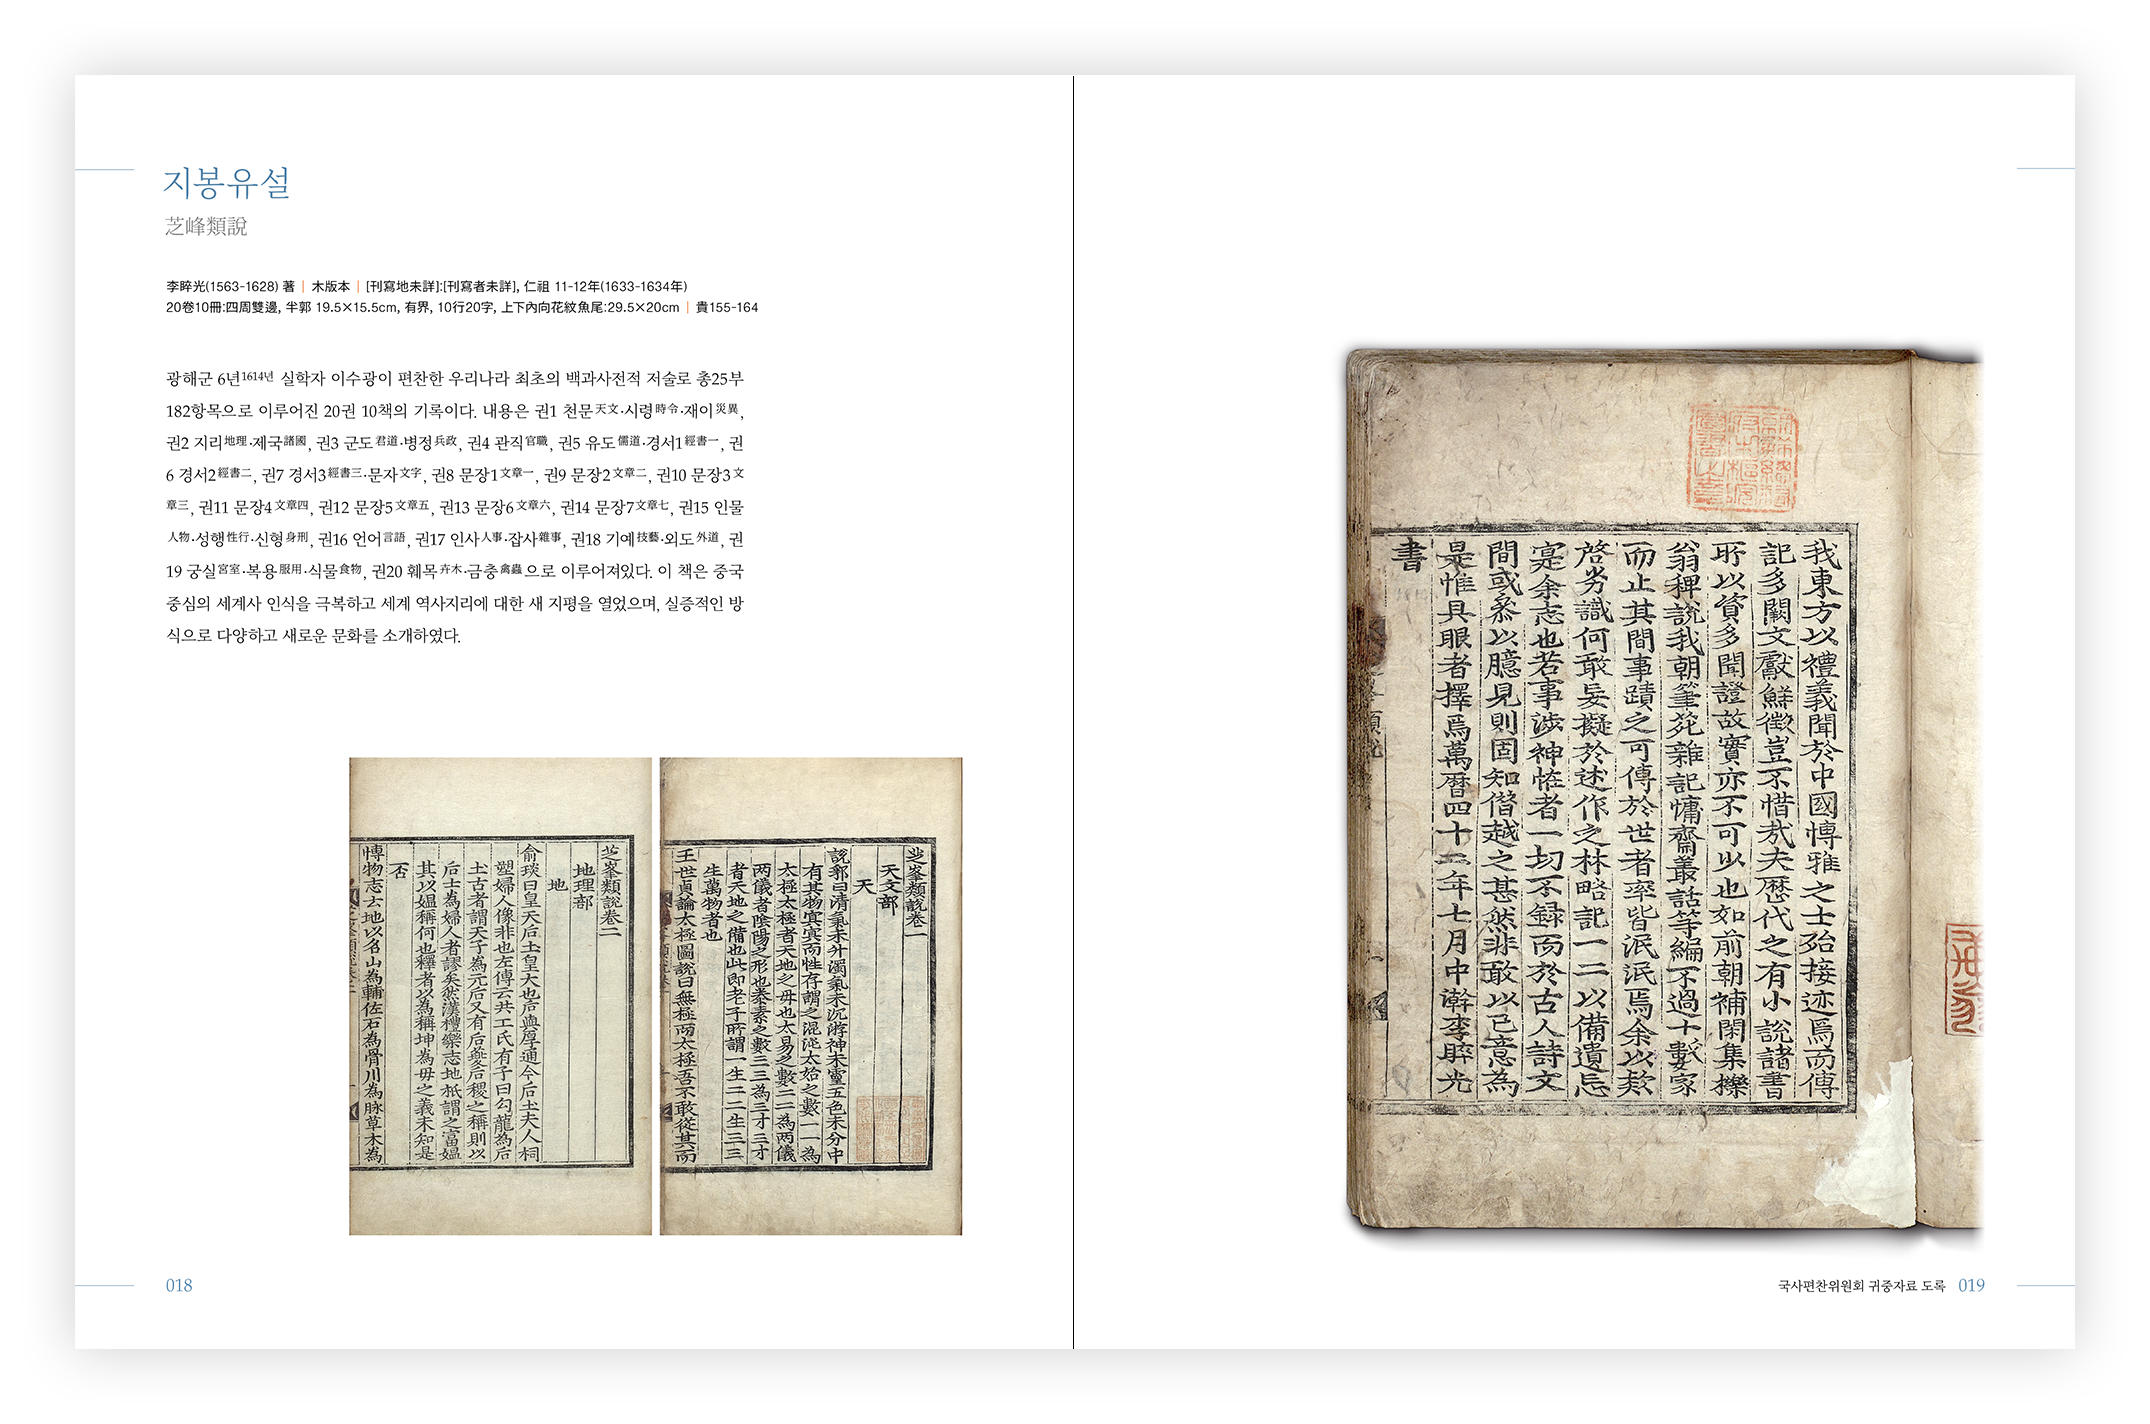 지봉유설
芝峰類說
李睟光(1563-1628) 著 | 木版本 | [刊寫地未詳]:[刊寫者未詳], 仁祖 11-12年(1633-1634年)
20卷10冊:四周雙邊, 半郭 19.5×15.5cm, 有界, 10行20字, 上下內向花紋魚尾:29.5×20cm | 貴155-164
광해군 6년1614년 실학자 이수광이 편찬한 우리나라 최초의 백과사전적 저술로 총25부
182항목으로 이루어진 20권 10책의 기록이다. 내용은 권1 천문天文·시령時令·재이災異,
권2 지리地理·제국諸國, 권3 군도君道·병정兵政, 권4 관직官職, 권5 유도儒道·경서1經書一, 권
6 경서2經書二, 권7 경서3經書三·문자文字, 권8 문장1文章一, 권9 문장2文章二, 권10 문장3文
章三, 권11 문장4文章四, 권12 문장5文章五, 권13 문장6文章六, 권14 문장7文章七, 권15 인물
人物·성행性行·신형身刑, 권16 언어言語, 권17 인사人事·잡사雜事, 권18 기예技藝·외도外道, 권
19 궁실宮室·복용服用·식물食物, 권20 훼목卉木·금충禽蟲으로 이루어져있다. 이 책은 중국
중심의 세계사 인식을 극복하고 세계 역사지리에 대한 새 지평을 열었으며, 실증적인 방
식으로 다양하고 새로운 문화를 소개하였다.
芝峯類說卷一
天文部
天
說郛曰淸氣未升濁氣未沉游神未靈五色未分中
有其物冥冥而性存謂之混沌太始之數一一為
太極太極者天地之母也太易之數二二為兩儀
兩儀者陰陽之形也泰素之數三三為三才三才
者天地之備也此即老子所謂一生二二生三三
生萬物者也
王世貞論太極圖說曰無極而太極吾不敢從其而
芝峯類說卷二
地理部
地
俞琰曰皇天后土皇大也后與厚通今后土夫人祠
塑婦人像非也左傳云共工氏有子曰勾龍為后
土古者謂天子為元后又有后夔后稷之稱則以
后土為婦人者謬矣然漢禮樂志地祇謂之富媼
其以媼稱何也釋者以為稱坤為母之義未知是
否
博物志云地以名山為輔佐石為骨川為脉草木為
018
我東方以禮義聞於中國博雅之士殆接迹焉而傳
記多闕文獻鮮徵豈不惜哉夫歷代之有小說諸書
所以資多聞證故實亦不可以也如前朝補閑集櫟
翁稗說我朝筆苑雜記慵齋叢話等編不過十數家
而止其間事蹟之可傳於世者率皆泯泯焉余以款
啓劣識何敢妄擬於述作之林略記一二以備遺忘
寔余志也若事涉神怪者一切不錄而於古人詩文
間或叅以臆見則固知僭越之甚然非敢以已意為
是惟具眼者擇焉萬曆四十二年七月中澣李睟光
書
국사편찬위원회 귀중자료 도록 019